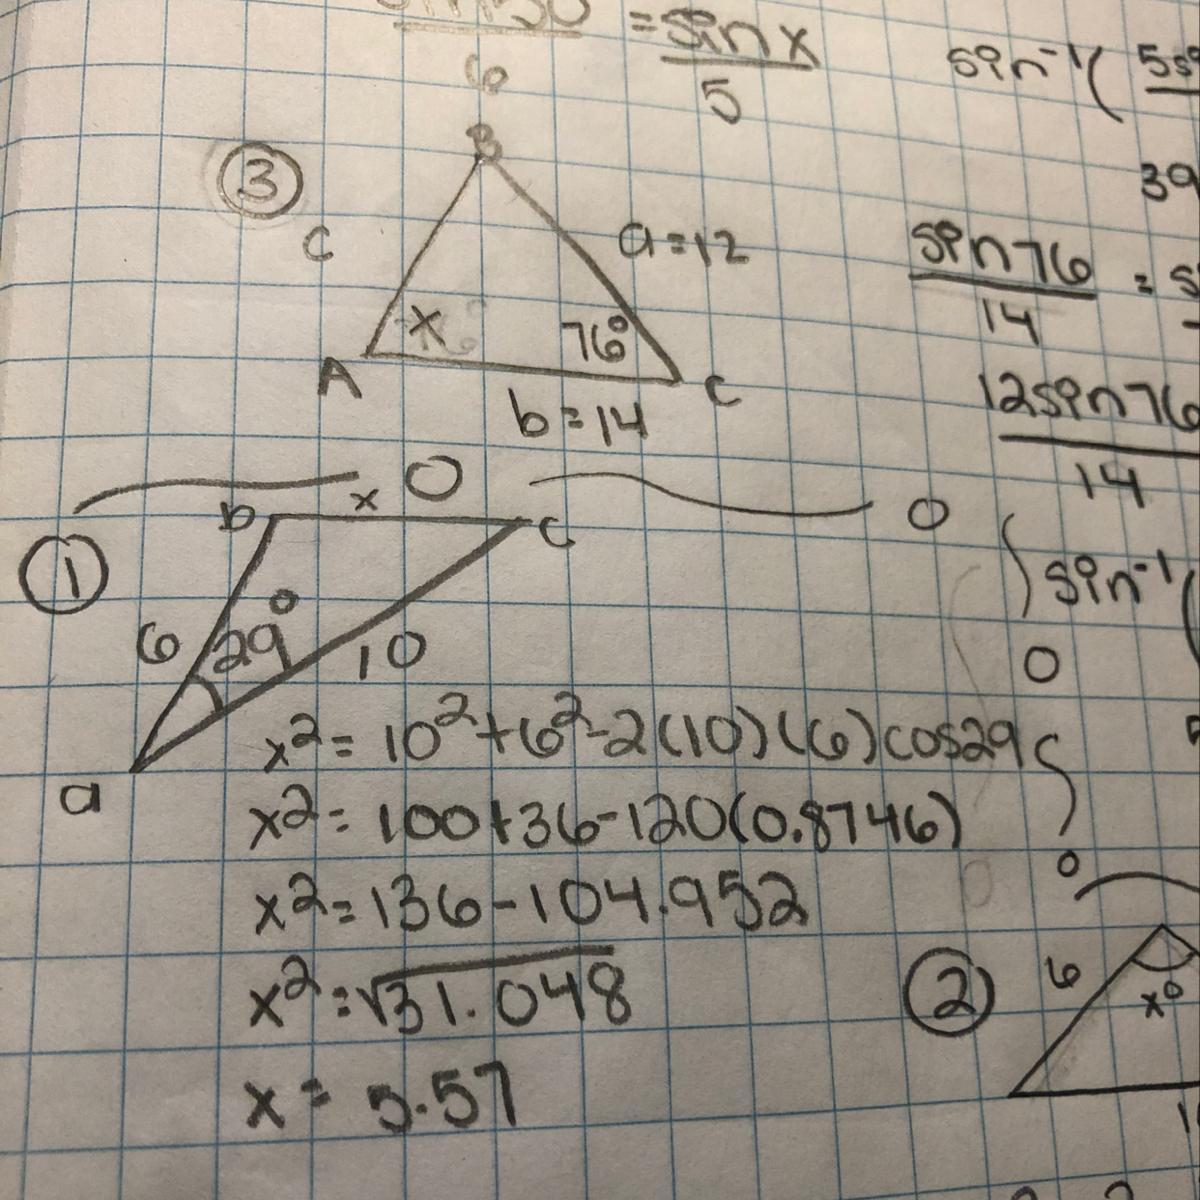 = sin x
6
5
sin⁻¹(
39
③
B
c
a=12
x
76°
A
C
b=14
sin76
14
=
12sin76
14
sin⁻¹(
①
b
x
c
6
29°
10
a
x²= 10²+6²-2(10)(6)cos29
x²= 100+36-120(0.8746)
x²=136-104.952
x²=√31.048
x = 5.57
②
6
x°